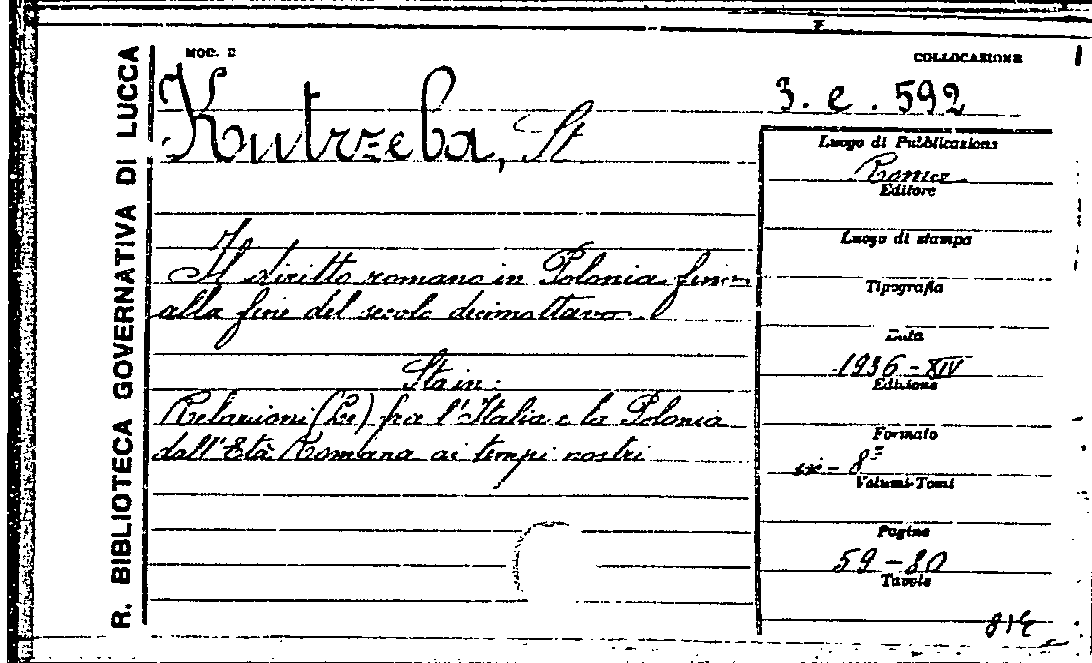 R. BIBLIOTECA GOVERNATIVA DI LUCCA
MOD. E
COLLOCAZIONE
3. e. 592
Kutrzeba, St
Il diritto romano in Polonia fino
alla fine del secolo decimottavo.
Sta in:
Relazioni (Le) fra l'Italia e la Polonia
dall'Età Romana ai tempi nostri
Luogo di Pubblicazione
Roma
Editore
Luogo di stampa
Tipografia
Data
1936 - XIV
Edizione
Formato
in - 8º
Volumi-Tomi
Pagine
59 - 80
Tavole